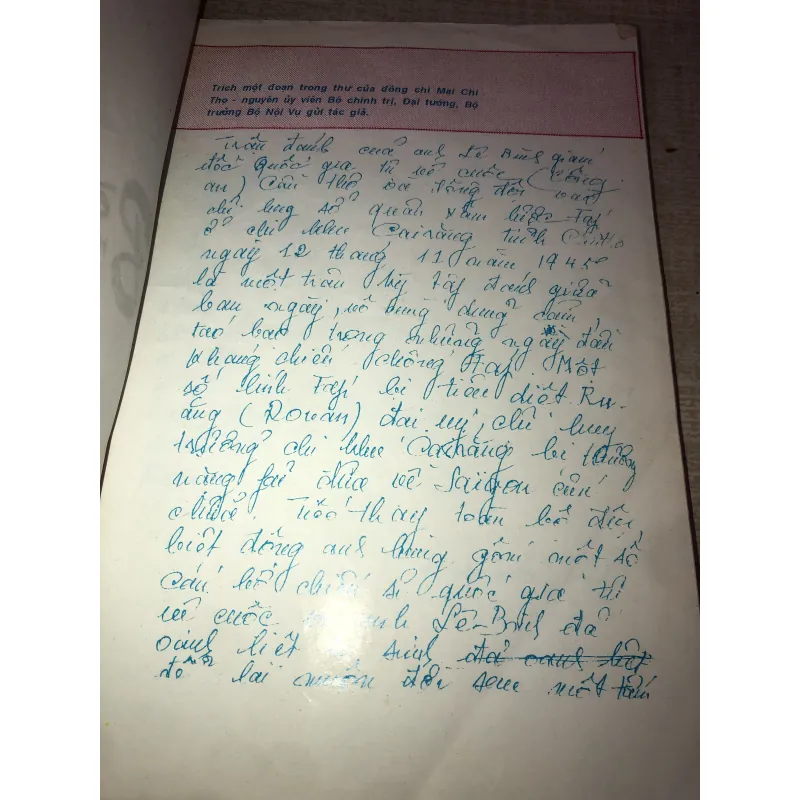 Trích một đoạn trong thư của đồng chí Mai Chí
Thọ - nguyên ủy viên Bộ chính trị, Đại tướng, Bộ
trưởng Bộ Nội Vụ gửi tác giả.
Trận đánh của anh Lê Bình giám
đốc Quốc gia tự vệ cuộc (Công
an) Cần Thơ
chỉ huy sở quân xâm lược Tây
ở chi khu Cái răng tỉnh Cần thơ
ngày 12 tháng 11 năm 1945
là một trận kỳ tập đánh giữa
ban ngày, vô cùng dũng cảm,
táo bạo trong những ngày đầu
kháng chiến chống Pháp. Một
số lính Tây bị tiêu diệt. Ru
ăng (Rouan) đại uý, chỉ huy
trưởng chi khu Cái răng bị thương
nặng fải đưa về Saigon cứu
chữa. Tiếc thay toàn bộ đội
biệt động anh hùng gồm một số
cán bộ chiến sĩ quốc gia tự
vệ cuộc và anh Lê-Bình đã
oanh liệt hy sinh đã oanh liệt
để lại muôn đời sau một tấm